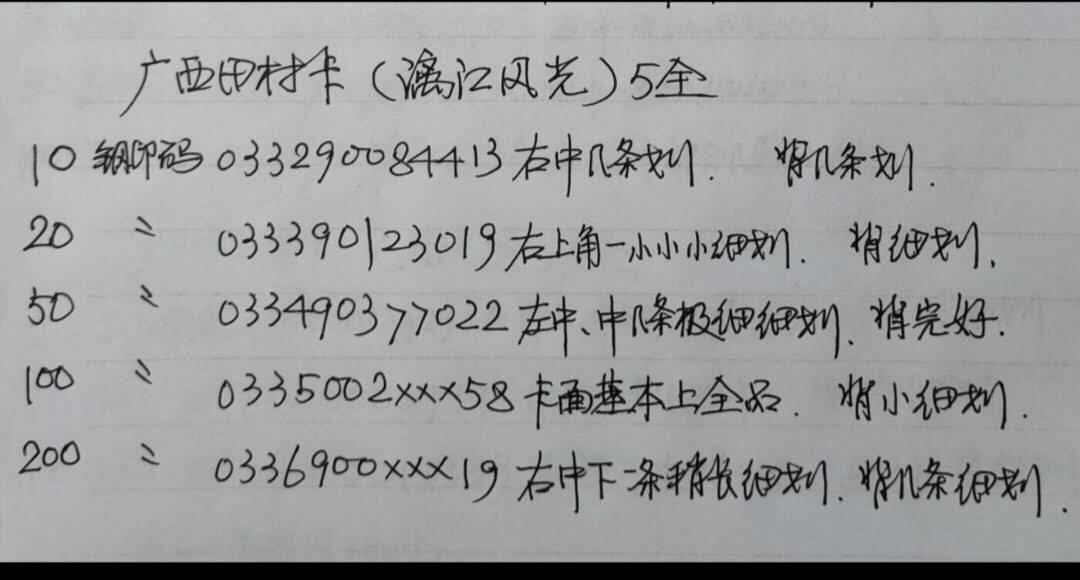 广西田村卡（漓江风光）5全
10 钢印码 033290084413 右中几条划. 背几条划.
20 〃 033390123019 右上角一小小小细划. 背细划.
50 〃 033490377022 左中、中几条极细细划. 背完好.
100 〃 0335002xxx58 卡面基本上全品. 背小细划.
200 〃 0336900xxx19 右中下一条稍长细划. 背几条细划.